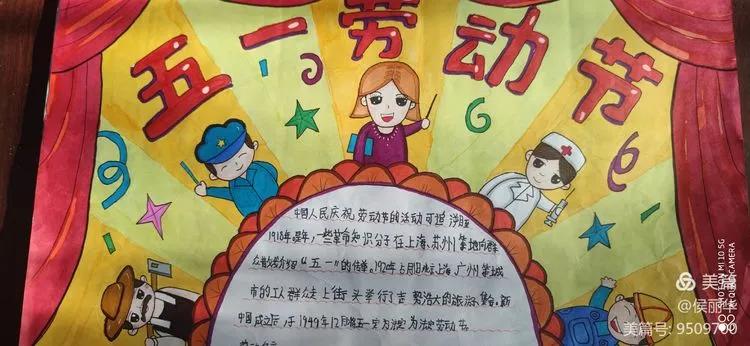 五一劳动节
中国人民庆祝劳动节的活动可追溯至
1918年,是年,一些革命知识分子在上海、苏州等地向群
众散发介绍“五一”的传单。1920年5月1日上海、广州等城
市的工人群众走上街头举行了声势浩大的游行、集会。新
中国成立后,于1949年12月将五一定为法定为法定劳动节
美篇
@侯丽华
美篇号: 9509700
SHOT ON MI 10 5G